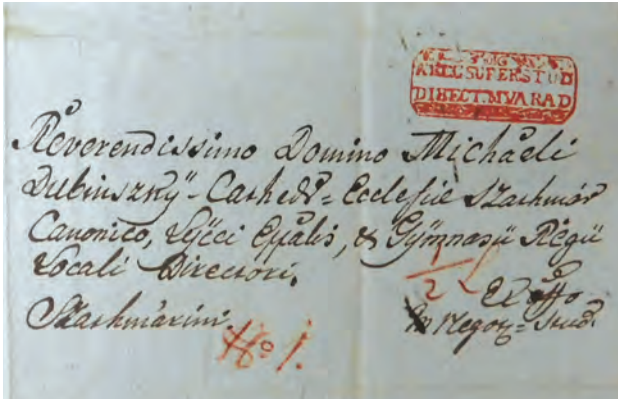 A REG SUPER STUD
DIRECT. M VARAD
Reverendissimo Domino Michaëli
Dubinszkÿ - Cathedr = Ecclesiæ Szathmár
Canonico, Lÿcei Eppalis, & Gÿmnasii Regii
Locali Directori.
Ex Offo
Szathmárini.
In Negotz = Stud.
No 1.